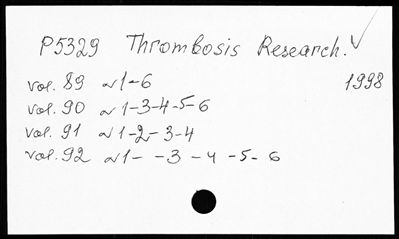 P5329 Thrombosis Research. ✓
vol. 89 N 1-6 1998
vol. 90 N 1-3-4-5-6
vol. 91 N 1-2-3-4
vol. 92 N 1- -3-4-5-6